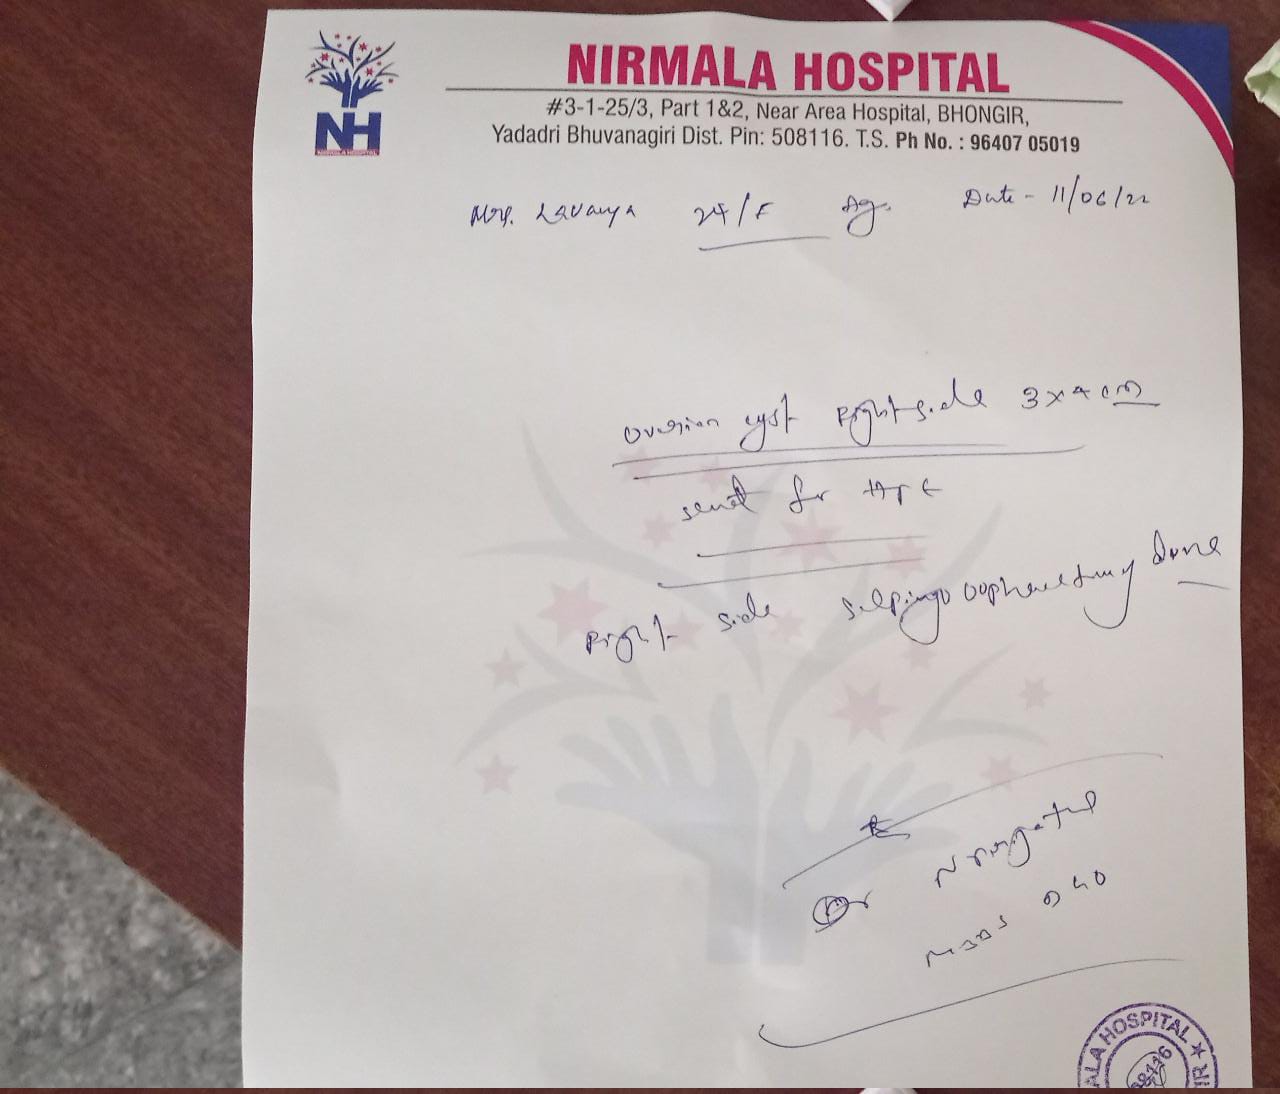 NIRMALA HOSPITAL
#3-1-25/3, Part 1&2, Near Area Hospital, BHONGIR,
Yadadri Bhuvanagiri Dist. Pin: 508116. T.S. Ph No. : 96407 05019
NH
NIRMALA HOSPITAL
Mrs. Lavanya 24/F Date - 11/06/22
ovarian cyst Right side 3x4 cm
send for HPE
Right side Salpingo oophorectomy done
Dr
MBBS DGO
ALA HOSPITAL ★